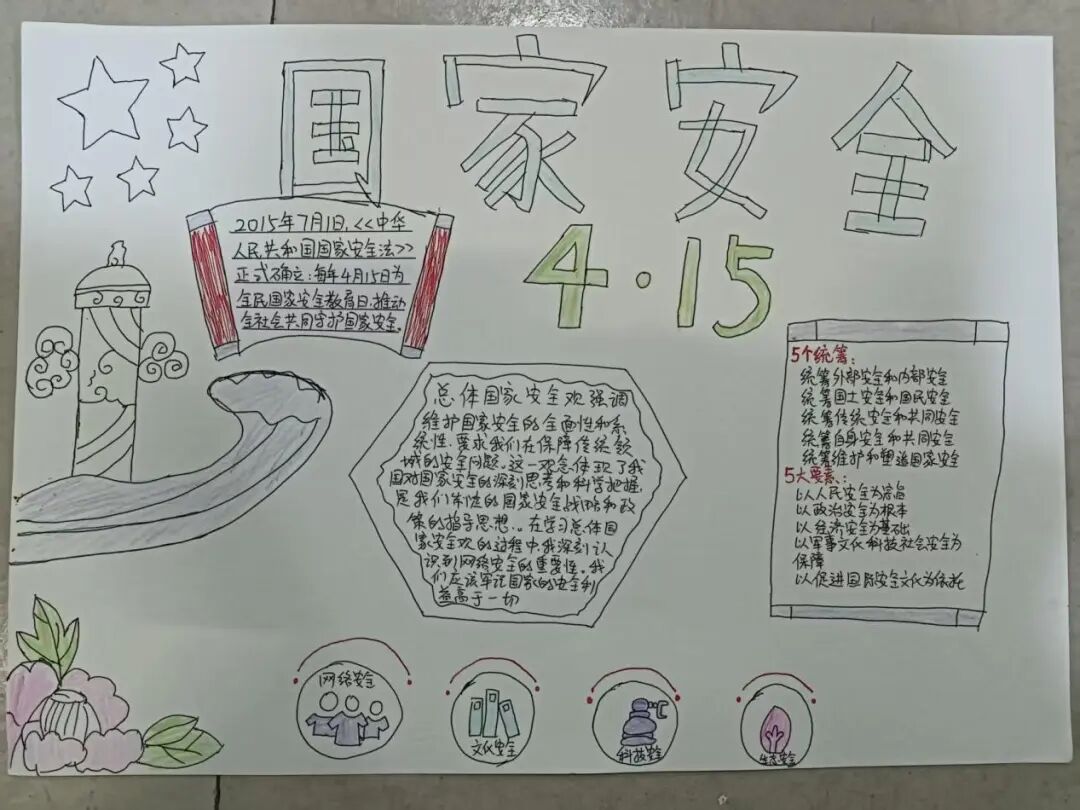 国家安全
4·15
2015年7月1日,<<中华
人民共和国国家安全法>>
正式确立:每年4月15日为
全民国家安全教育日,推动
全社会共同守护国家安全。
总体国家安全观强调
维护国家安全的全面性和系
统性,要求我们在保障传统领
域的安全问题。这一观念体现了我
国对国家安全的深刻思考和科学把握,
是我们制定的国家安全战略和政
策的指导思想.。在学习总体国
家安全观的过程中,我深刻认
识到网络安全的重要性。我
们应该牢记国家的安全利
益高于一切
5个统筹:
统筹外部安全和内部安全
统筹国土安全和国民安全
统筹传统安全和共同安全
统筹自身安全和共同安全
统筹维护和塑造国家安全
5大要素:
以人民安全为宗旨
以政治安全为根本
以经济安全为基础
以军事文化科技社会安全为
保障
以促进国际安全文化为依托
网络安全
文化安全
科技安全
生态安全